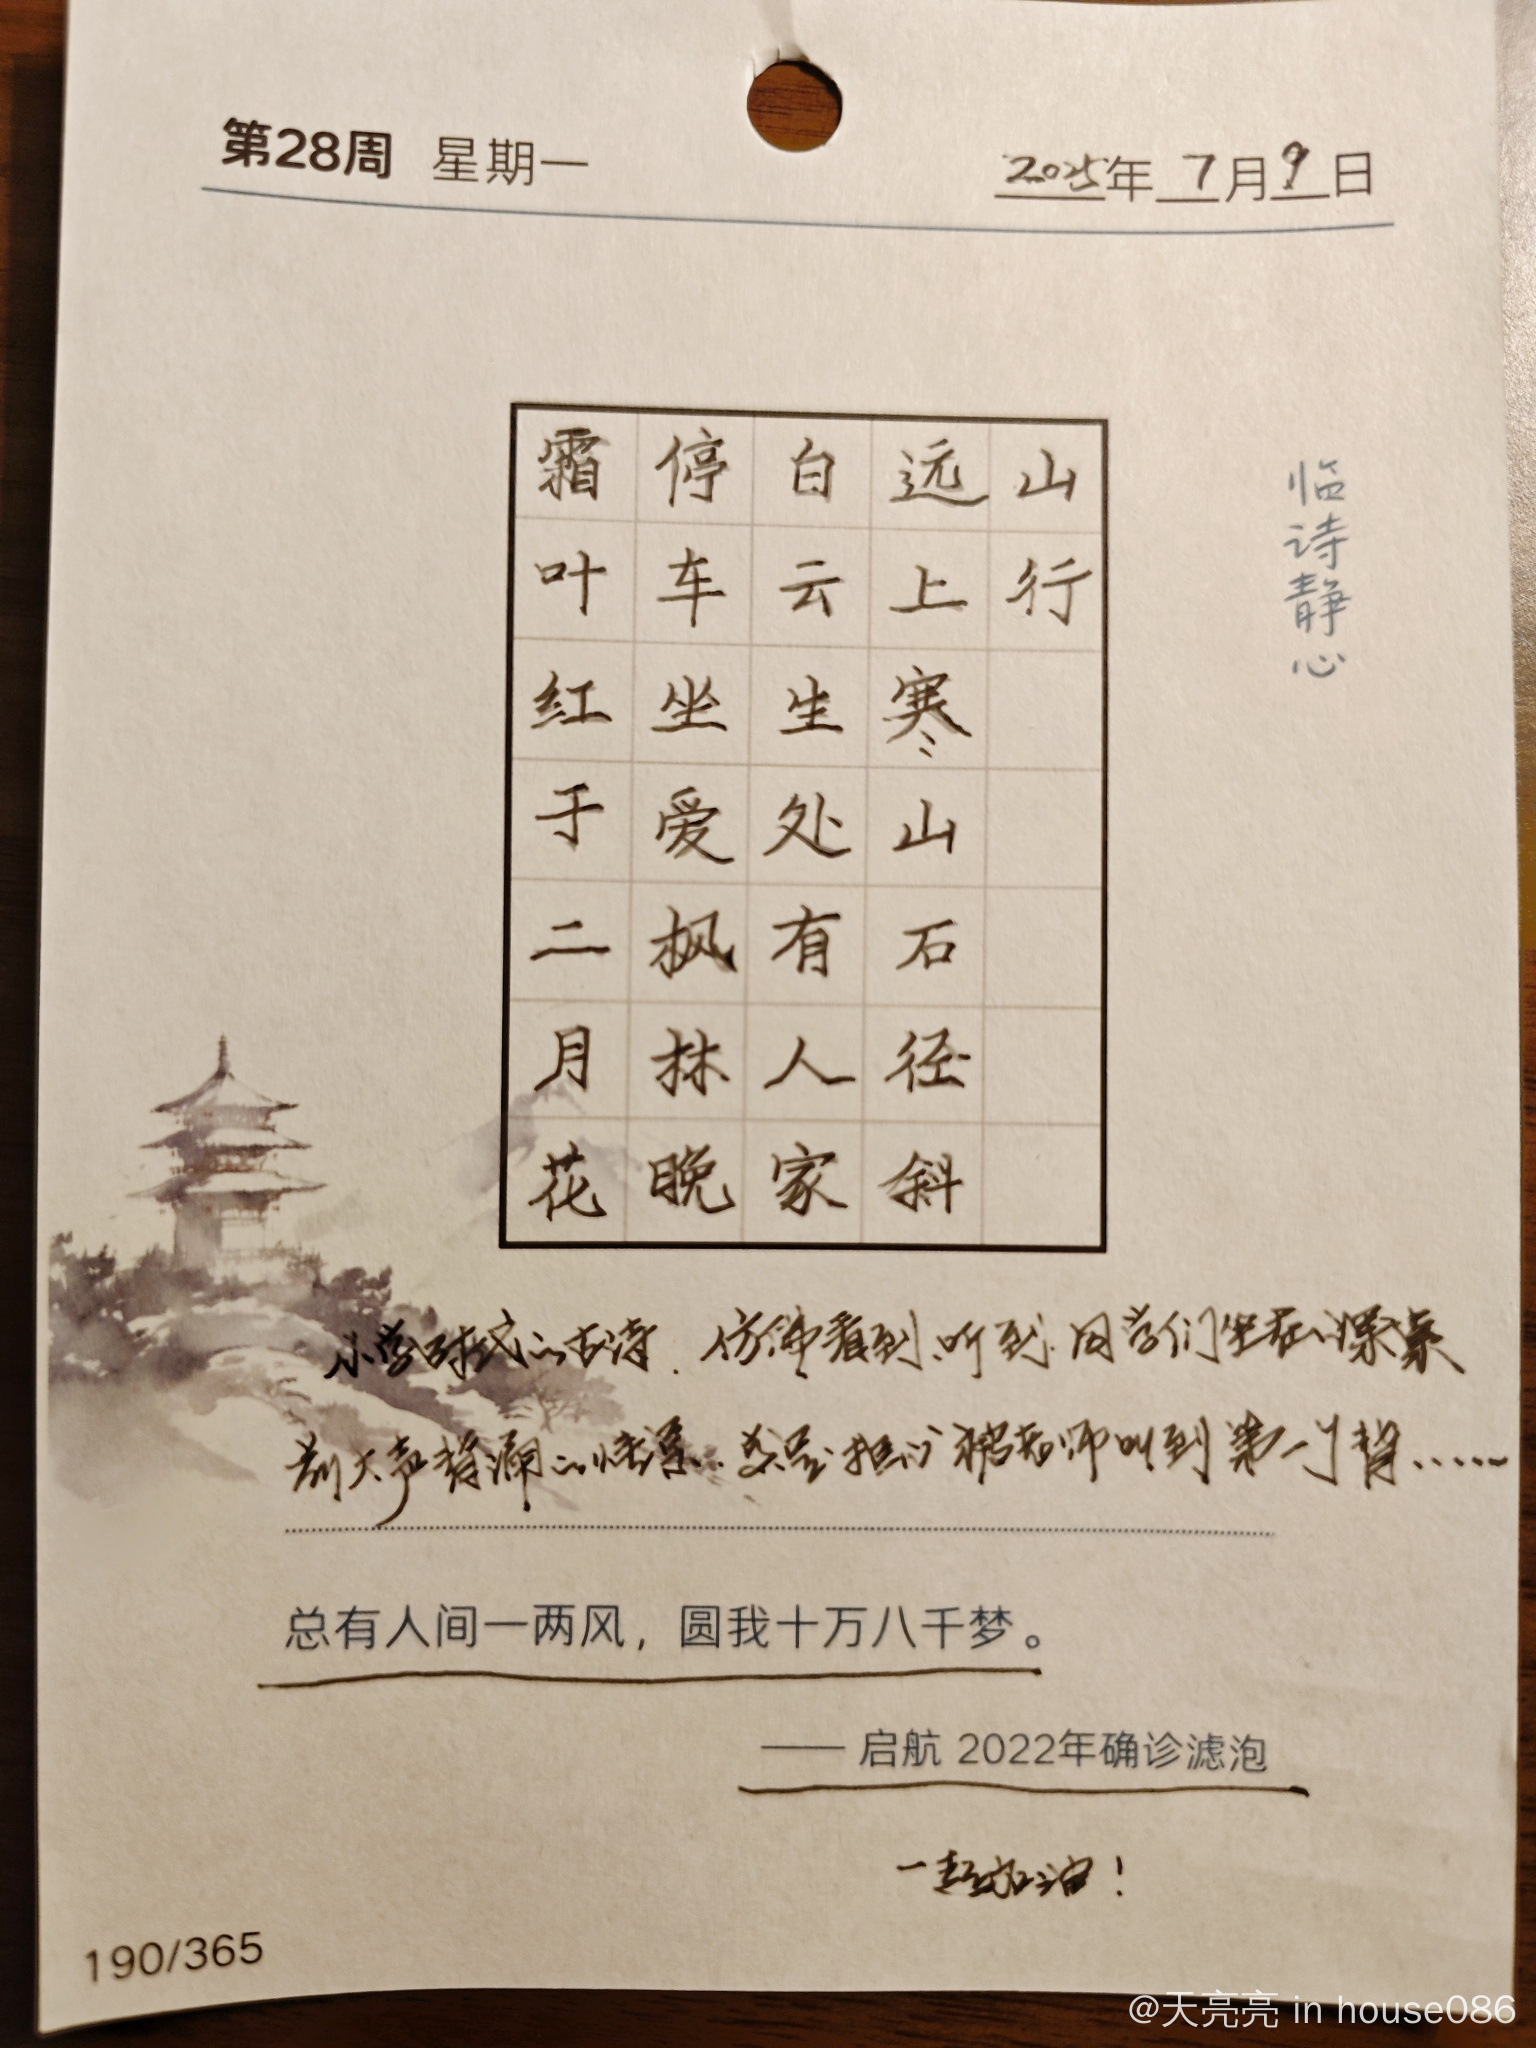 第28周 星期一
2025年 7月9日
临诗静心
山行
远上寒山石径斜
白云生处有人家
停车坐爱枫林晚
霜叶红于二月花
小学时代的古诗，仿佛看到、听到同学们坐在
大声 的情景 担心被老师叫到第一个背……
总有人间一两风，圆我十万八千梦。
—— 启航 2022年确诊滤泡
一起加油！
190/365
@天亮亮 in house086